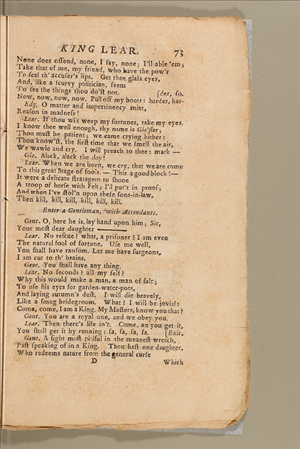 KING LEAR. 73
None does offend, none, I say, none; I'll able 'em;
Take that of me, my friend, who have the pow'r
To seal th' accuser's lips. Get thee glass eyes,
And, like a scurvy politician, seem
To see the things thou do'st not. [der, so.
Now, now, now, now. Pull off my boots: harder, har-
Edg. O matter and impertinency mixt,
Reason in madness!
Lear. If thou wilt weep my fortunes, take my eyes.
I know thee well enough, thy name is Glo'ster;
Thou must be patient; we came crying hither:
Thou know'st, the first time that we smell the air,
We wawle and cry. I will preach to thee: mark —
Glo. Alack, alack the day!
Lear. When we are born, we cry, that we are come
To this great Stage of fools. — This a good block!—
It were a delicate stratagem to shooe
A troop of horse with Felt; I'd put't in proof;
And when I've stol'n upon these sons-in-law,
Then kill, kill, kill, kill, kill, kill.
Enter a Gentleman, with Attendants.
Gent. O, here he is, lay hand upon him; Sir,
Your most dear daughter ———
Lear. No rescue? what, a prisoner? I am even
The natural fool of fortune. Use me well,
You shall have ransom. Let me have surgeons,
I am cut to th' brains.
Gent. You shall have any thing.
Lear. No seconds? all my self?
Why this would make a man, a man of salt;
To use his eyes for garden-water-pots,
And laying autumn's dust. I will die bravely,
Like a smug bridegroom. What? I will be jovial:
Come, come, I am a King. My Masters, know you that?
Gent. You are a royal one, and we obey you.
Lear. Then there's life in't. Come, an you get it,
You shall get it by running: sa, sa, sa, sa. [Exit.
Gent. A sight most pitiful in the meanest wretch,
Past speaking of in a King. Thou hast one daughter,
Who redeems nature from the general curse
D Which